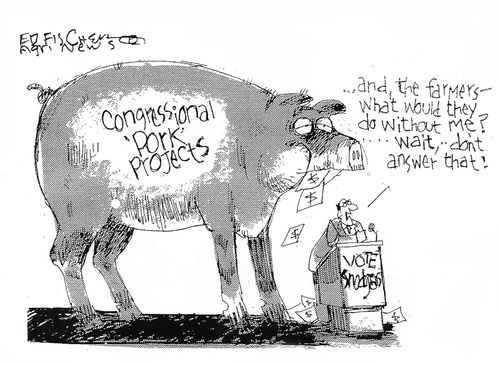 ED FISCHER
Congressional
'Pork'
Projects
...and, the farmers—
what would they
do without me?
..... wait,..don't
answer that!
$
$
$
$
$
VOTE